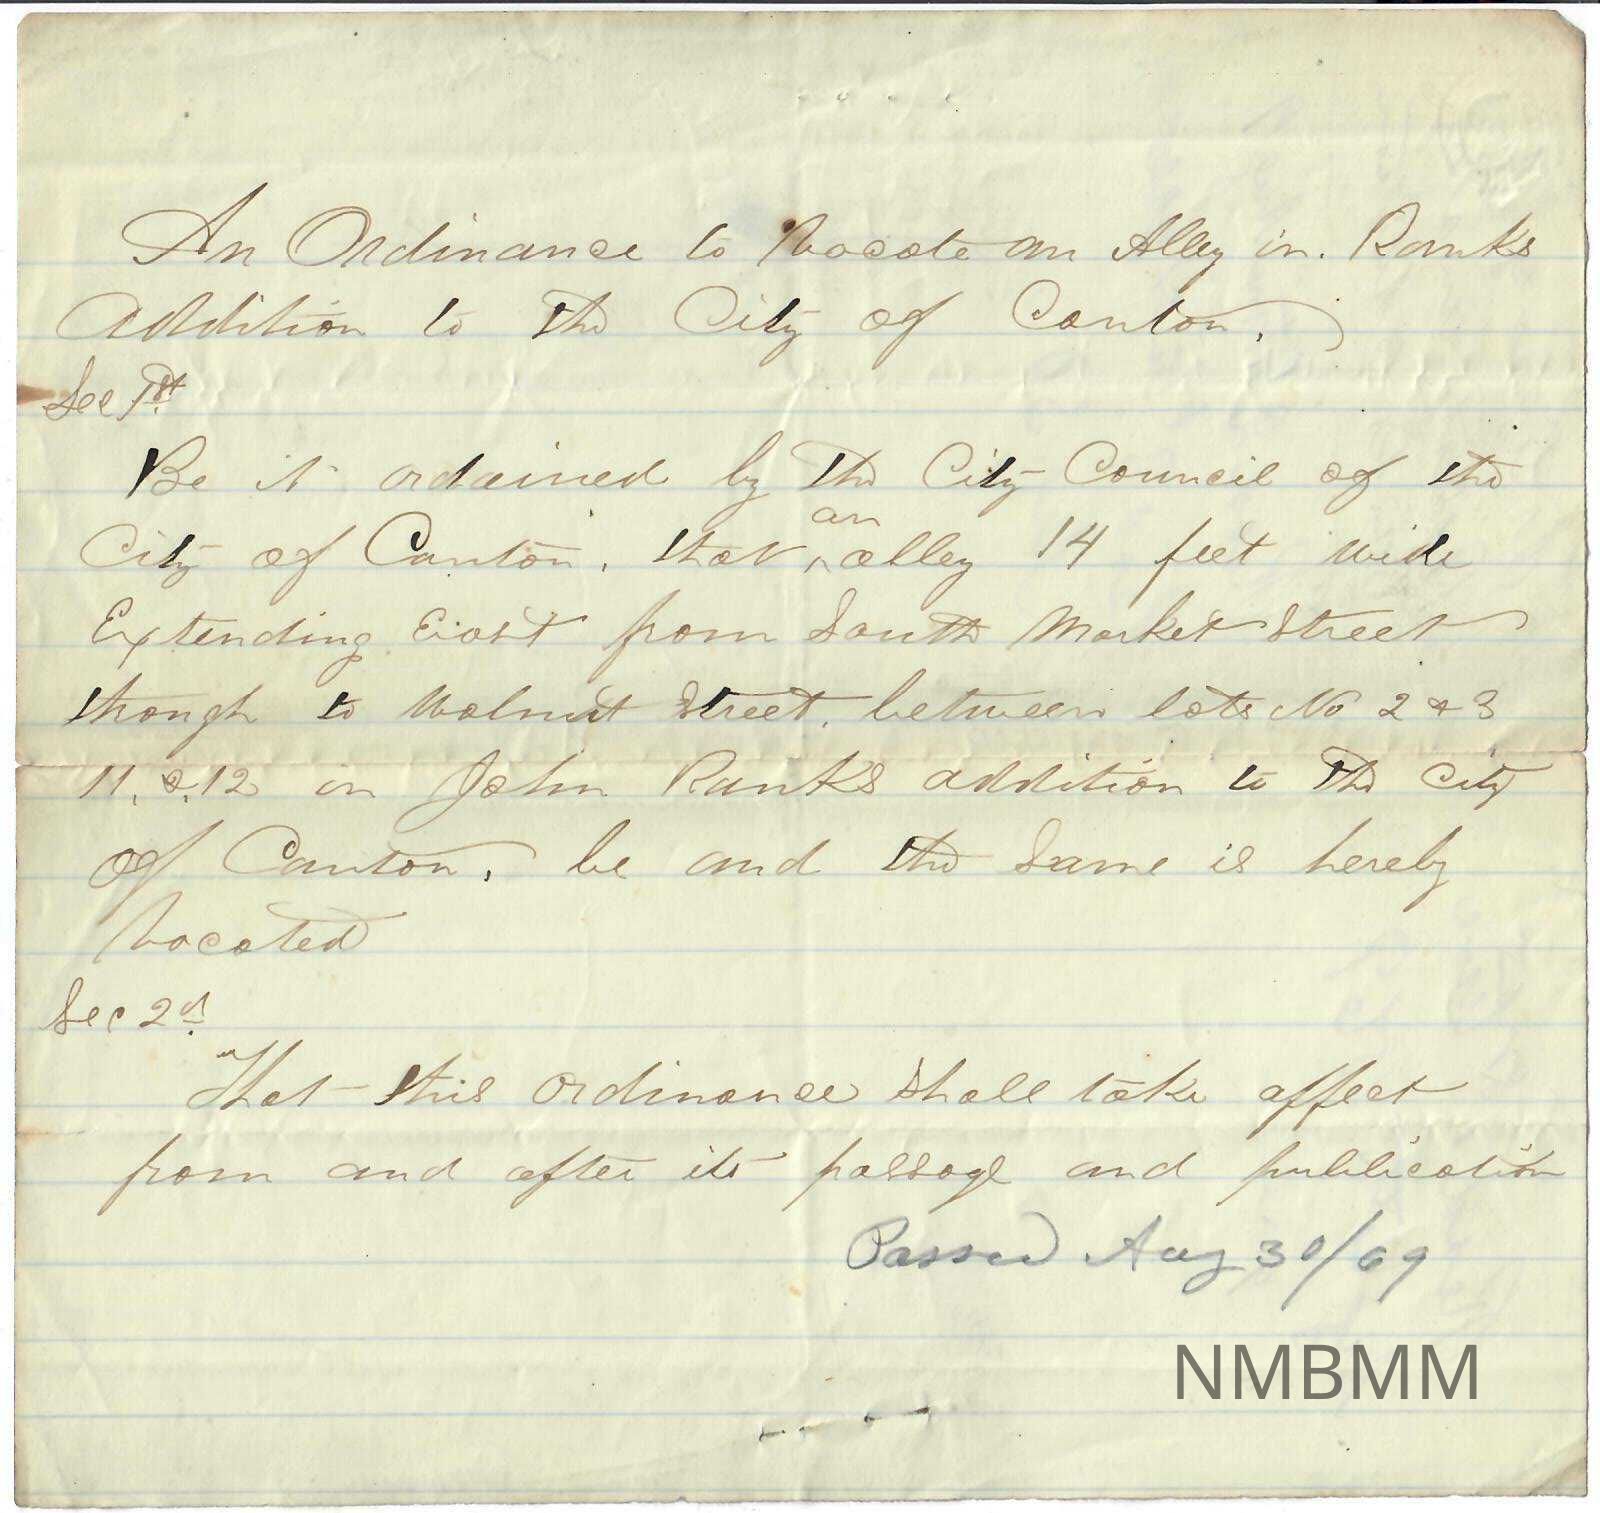 An Ordinance to Vacate an Alley in. Ranks
Addition to the City of Canton.
Sec 1st
Be it ordained by the City Council of the
City of Canton. that an alley 14 feet wide
Extending East from South Market Street
though to Walnut Street. between lots No 2 & 3
11. &.12 in John Ranks addition to the City
of Canton. be and the same is hereby
Vacated
Sec 2d
That this ordinance shall take affect
from and after its passage and publication
Passed Aug 30/69
NMBMM